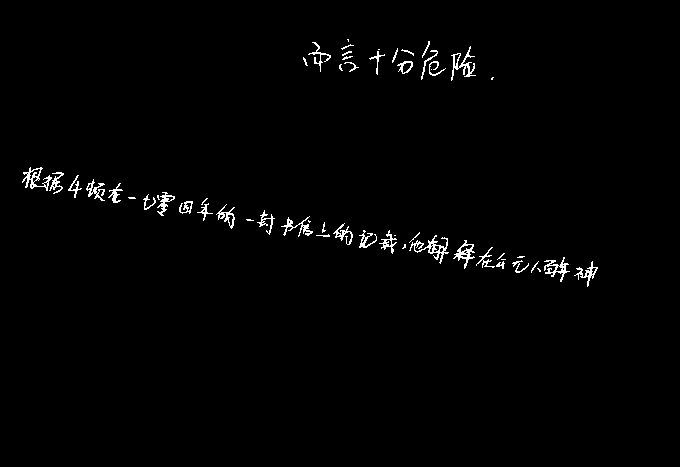 而言十分危险.
根据牛顿在一七零四年的一封书信上的记载,他翻译在公元八百年神